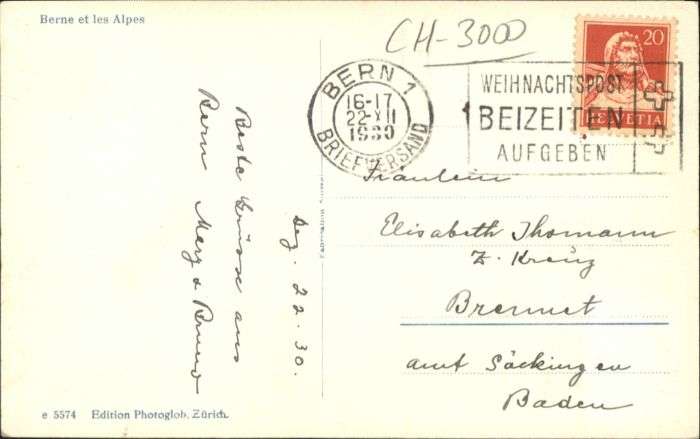 Berne et les Alpes
CH-3000
BERN 1
16-17
22·XII
1930
BRIEFVERSAND
WEIHNACHTSPOST
BEIZEITEN
AUFGEBEN
20
HELVETIA
Dez. 22.30.
Beste Grüsse aus
Bern Mary & Bruno
Fräulein
Elisabeth Thomann
z. Kreuz
Brennet
amt Säckingen
Baden
e 5574 Edition Photoglob, Zürich.